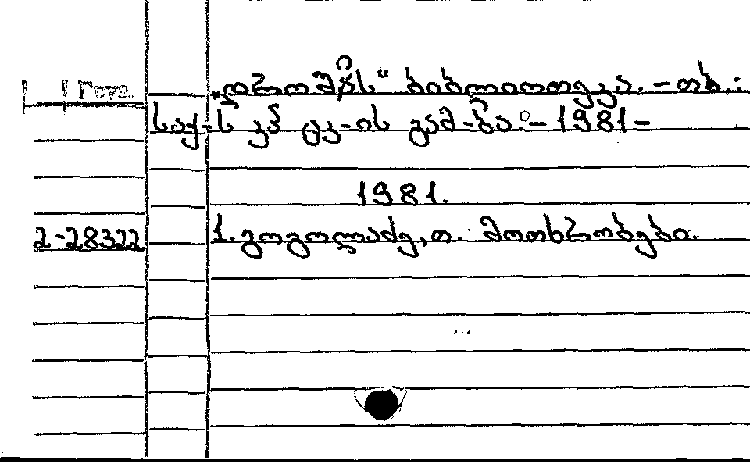 „დროშის“ ბიბლიოთეკა. – თბ.:
საქ-ს კპ ცკ-ის გამ-ბა. – 1981 –
1981.
2-28322 1. გოგოლაძე, თ. მოთხრობები.